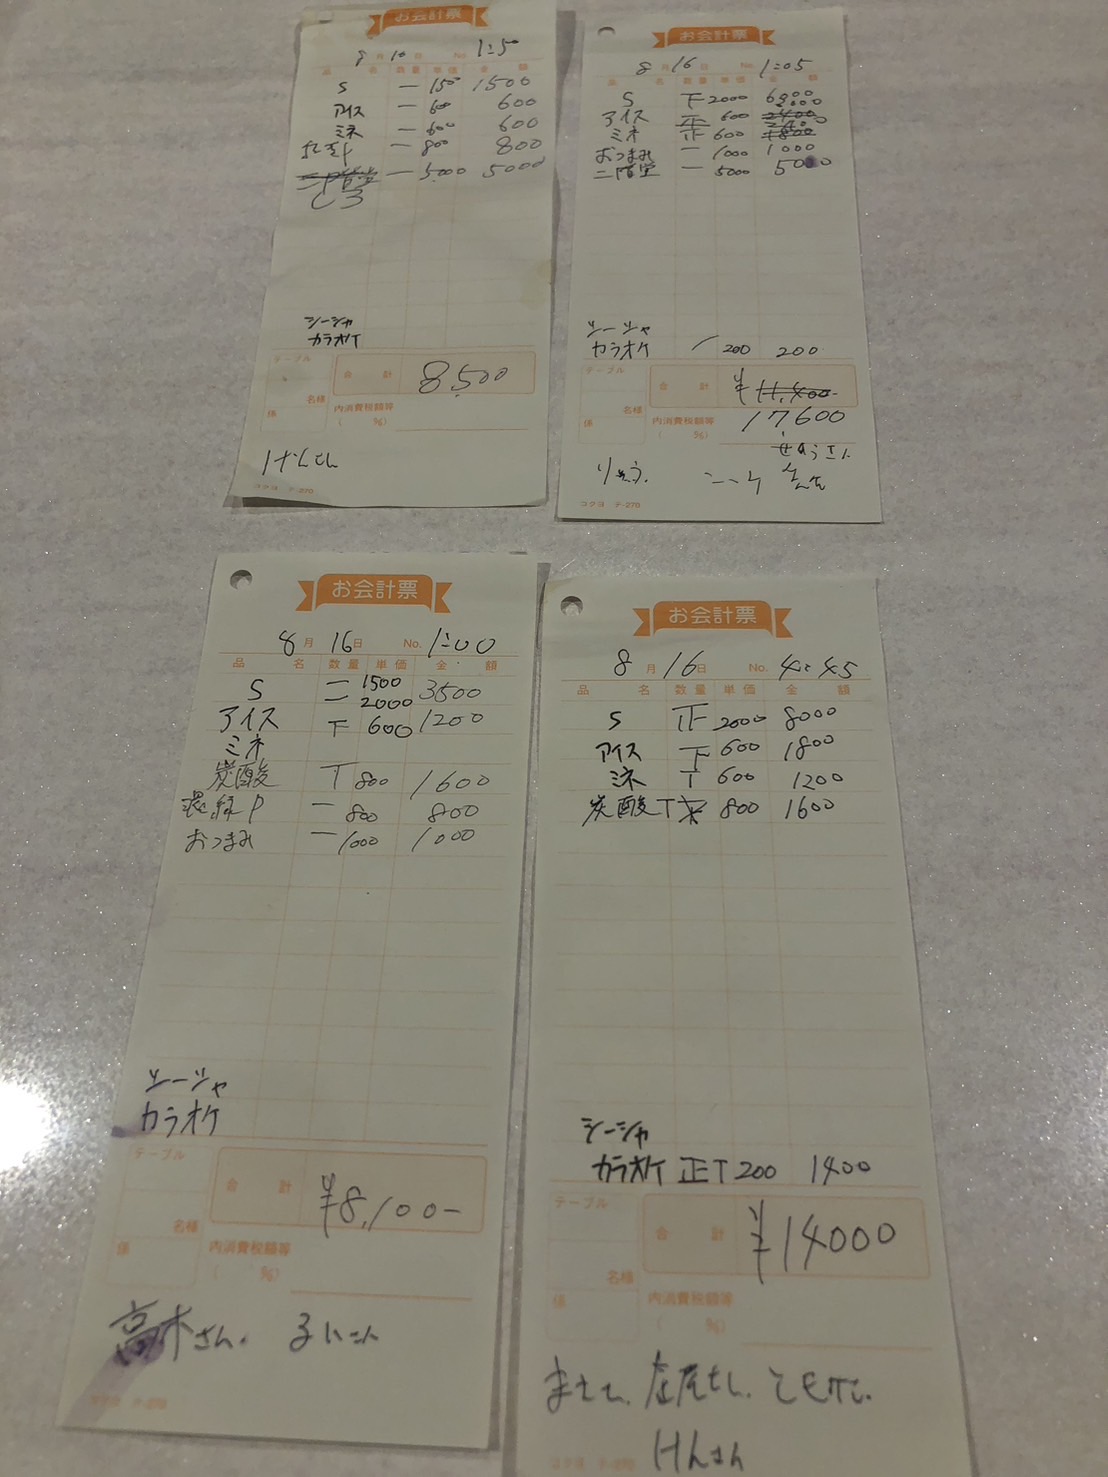 お会計票
8月10日 No. 1:50
品 名 数量 単価 金 額
S 一 1500 1500
アイス 一 600 600
ミネ 一 600 600
一 800 800
一 5000 5000
シーシャ
カラオケ
テーブル
合 計 8,500
名様
係
内消費税額等
( %)
けんさん
コクヨ テ-270
お会計票
8月16日 No. 1:05
品 名 数量 単価 金 額
S 下 2000 6000
アイス 正 600
ミネ 正 600
おつまみ 一 1000 1000
二階堂 一 5000 5000
シーシャ
カラオケ 200 200
テーブル
合 計 ¥11,400-
名様
係
内消費税額等 17600
( %)
コクヨ テ-270
お会計票
8月16日 No. 1:00
品 名 数量 単価 金 額
S 一 1500
一 2000 3500
アイス T 600 1200
ミネ
炭酸 T 800 1600
緑P 一 800 800
おつまみ 一 1000 1000
シーシャ
カラオケ
テーブル
合 計 ¥8,100-
名様
係
内消費税額等
( %)
高木さん.
コクヨ テ-270
お会計票
8月16日 No. 4:45
品 名 数量 単価 金 額
S 正 2000 8000
アイス 下 600 1800
ミネ T 600 1200
炭酸 T 800 1600
シーシャ
カラオケ 正T 200 1400
テーブル
合 計 ¥14000
名様
係
内消費税額等
( %)
けんさん
コクヨ テ-270